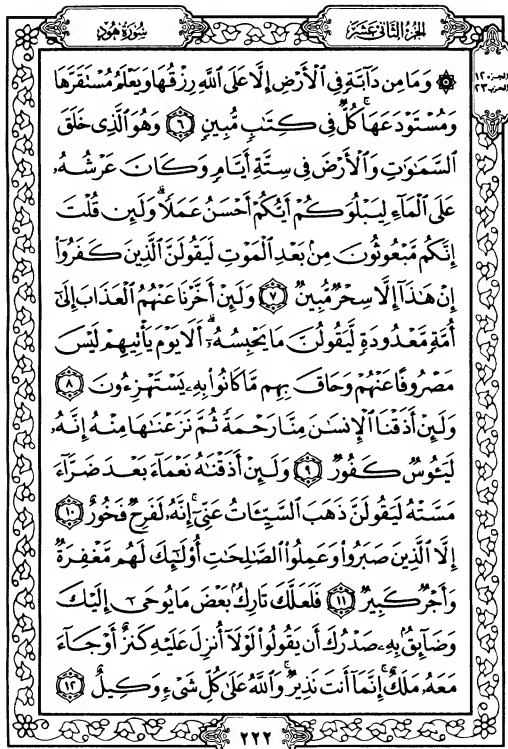 سُورَةُ هُودٍ
الجُزءُ الثَّانِى عَشَرَ
الجزء ١٢
الحزب ٢٣
۞ وَمَا مِن دَآبَّةٍ فِى ٱلْأَرْضِ إِلَّا عَلَى ٱللَّهِ رِزْقُهَا وَيَعْلَمُ مُسْتَقَرَّهَا
وَمُسْتَوْدَعَهَا ۚ كُلٌّ فِى كِتَٰبٍ مُّبِينٍ ٦ وَهُوَ ٱلَّذِى خَلَقَ
ٱلسَّمَٰوَٰتِ وَٱلْأَرْضَ فِى سِتَّةِ أَيَّامٍ وَكَانَ عَرْشُهُۥ
عَلَى ٱلْمَآءِ لِيَبْلُوَكُمْ أَيُّكُمْ أَحْسَنُ عَمَلًا ۗ وَلَئِن قُلْتَ
إِنَّكُم مَّبْعُوثُونَ مِنۢ بَعْدِ ٱلْمَوْتِ لَيَقُولَنَّ ٱلَّذِينَ كَفَرُوٓا۟
إِنْ هَٰذَآ إِلَّا سِحْرٌ مُّبِينٌ ٧ وَلَئِنْ أَخَّرْنَا عَنْهُمُ ٱلْعَذَابَ إِلَىٰٓ
أُمَّةٍ مَّعْدُودَةٍ لَّيَقُولُنَّ مَا يَحْبِسُهُۥٓ ۗ أَلَا يَوْمَ يَأْتِيهِمْ لَيْسَ
مَصْرُوفًا عَنْهُمْ وَحَاقَ بِهِم مَّا كَانُوا۟ بِهِۦ يَسْتَهْزِءُونَ ٨
وَلَئِنْ أَذَقْنَا ٱلْإِنسَٰنَ مِنَّا رَحْمَةً ثُمَّ نَزَعْنَٰهَا مِنْهُ إِنَّهُۥ
لَيَـُٔوسٌ كَفُورٌ ٩ وَلَئِنْ أَذَقْنَٰهُ نَعْمَآءَ بَعْدَ ضَرَّآءَ
مَسَّتْهُ لَيَقُولَنَّ ذَهَبَ ٱلسَّيِّـَٔاتُ عَنِّىٓ ۚ إِنَّهُۥ لَفَرِحٌ فَخُورٌ ١٠
إِلَّا ٱلَّذِينَ صَبَرُوا۟ وَعَمِلُوا۟ ٱلصَّٰلِحَٰتِ أُو۟لَٰٓئِكَ لَهُم مَّغْفِرَةٌ
وَأَجْرٌ كَبِيرٌ ١١ فَلَعَلَّكَ تَارِكٌۢ بَعْضَ مَا يُوحَىٰٓ إِلَيْكَ
وَضَآئِقٌۢ بِهِۦ صَدْرُكَ أَن يَقُولُوا۟ لَوْلَآ أُنزِلَ عَلَيْهِ كَنزٌ أَوْ جَآءَ
مَعَهُۥ مَلَكٌ ۚ إِنَّمَآ أَنتَ نَذِيرٌ ۚ وَٱللَّهُ عَلَىٰ كُلِّ شَىْءٍ وَكِيلٌ ١٢
٢٢٢